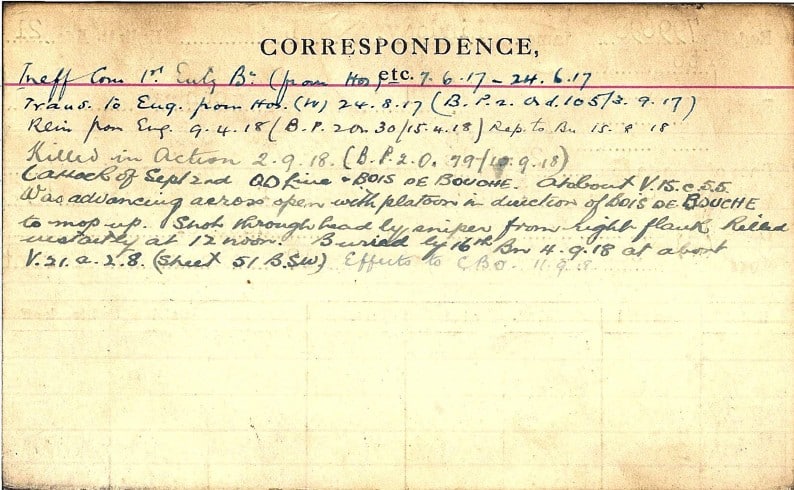 CORRESPONDENCE,
etc.
Ineff Com 1st Entg Bn (from Hos) 7.6.17 – 24.6.17
Trans. to Eng. from Hos. (W) 24.8.17 (B.P.2. Ord.105/3.9.17)
Rein from Eng. 9.4.18 (B.P.2 Or 30/15.4.18) Rep. to Bn 15.8 18
Killed in Action 2.9.18. (B.P.2.O. 79/ .9.18)
(attack of Sept 2nd QD line & BOIS DE BOUCHE. At about V.15.c.5.5.
Was advancing across open with platoon in direction of BOIS DE BOUCHE
to mop up. Shot through head by sniper from right flank Killed
instantly at 12 noon. Buried by 16th Bn 4.9.18 at about
V.21.a.2.8. (Sheet 51 B.SW) Effects to 11.9.18